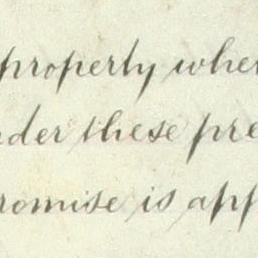 property wher
nder these pre
romise is app